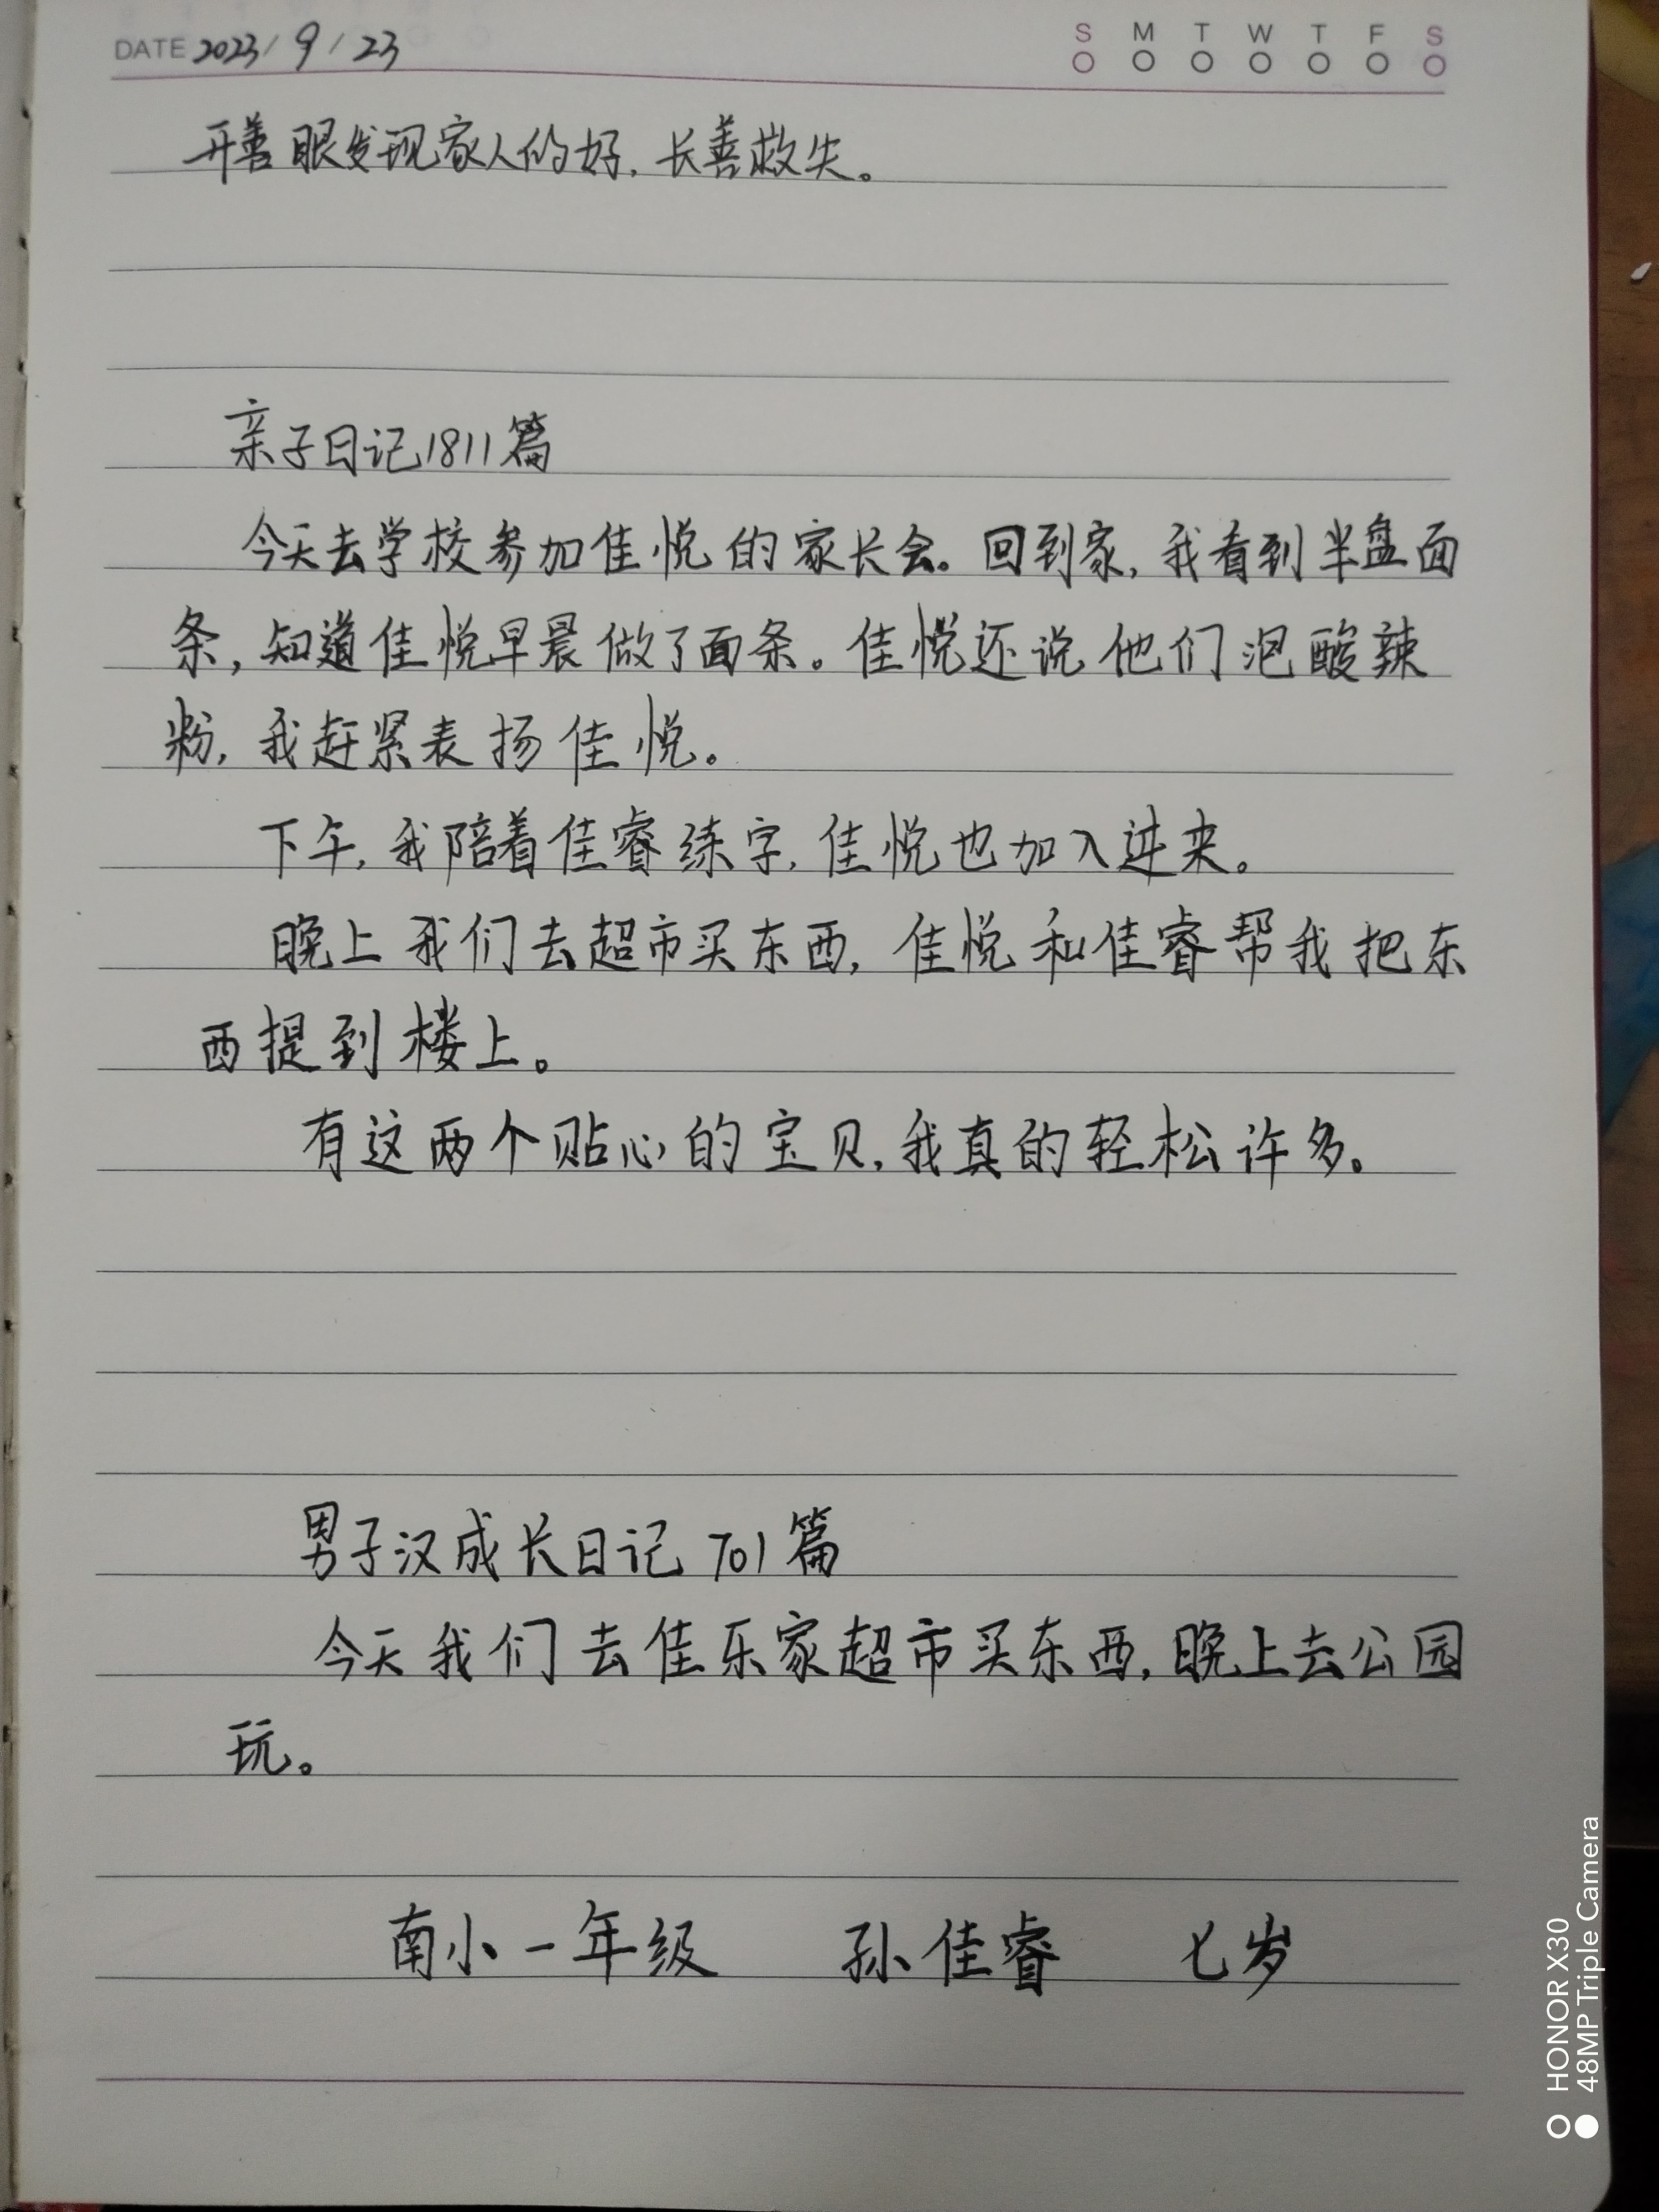 DATE 2023/9/23
S M T W T F S
开善眼发现家人的好，长善救失。
亲子日记1811篇
今天去学校参加佳悦的家长会。回到家，我看到半盘面
条，知道佳悦早晨做了面条。佳悦还说他们泡酸辣
粉，我赶紧表扬佳悦。
下午，我陪着佳睿练字，佳悦也加入进来。
晚上我们去超市买东西，佳悦和佳睿帮我把东
西提到楼上。
有这两个贴心的宝贝，我真的轻松许多。
男子汉成长日记 701篇
今天我们去佳乐家超市买东西，晚上去公园
玩。
南小一年级 孙佳睿 七岁
HONOR X30
48MP Triple Camera